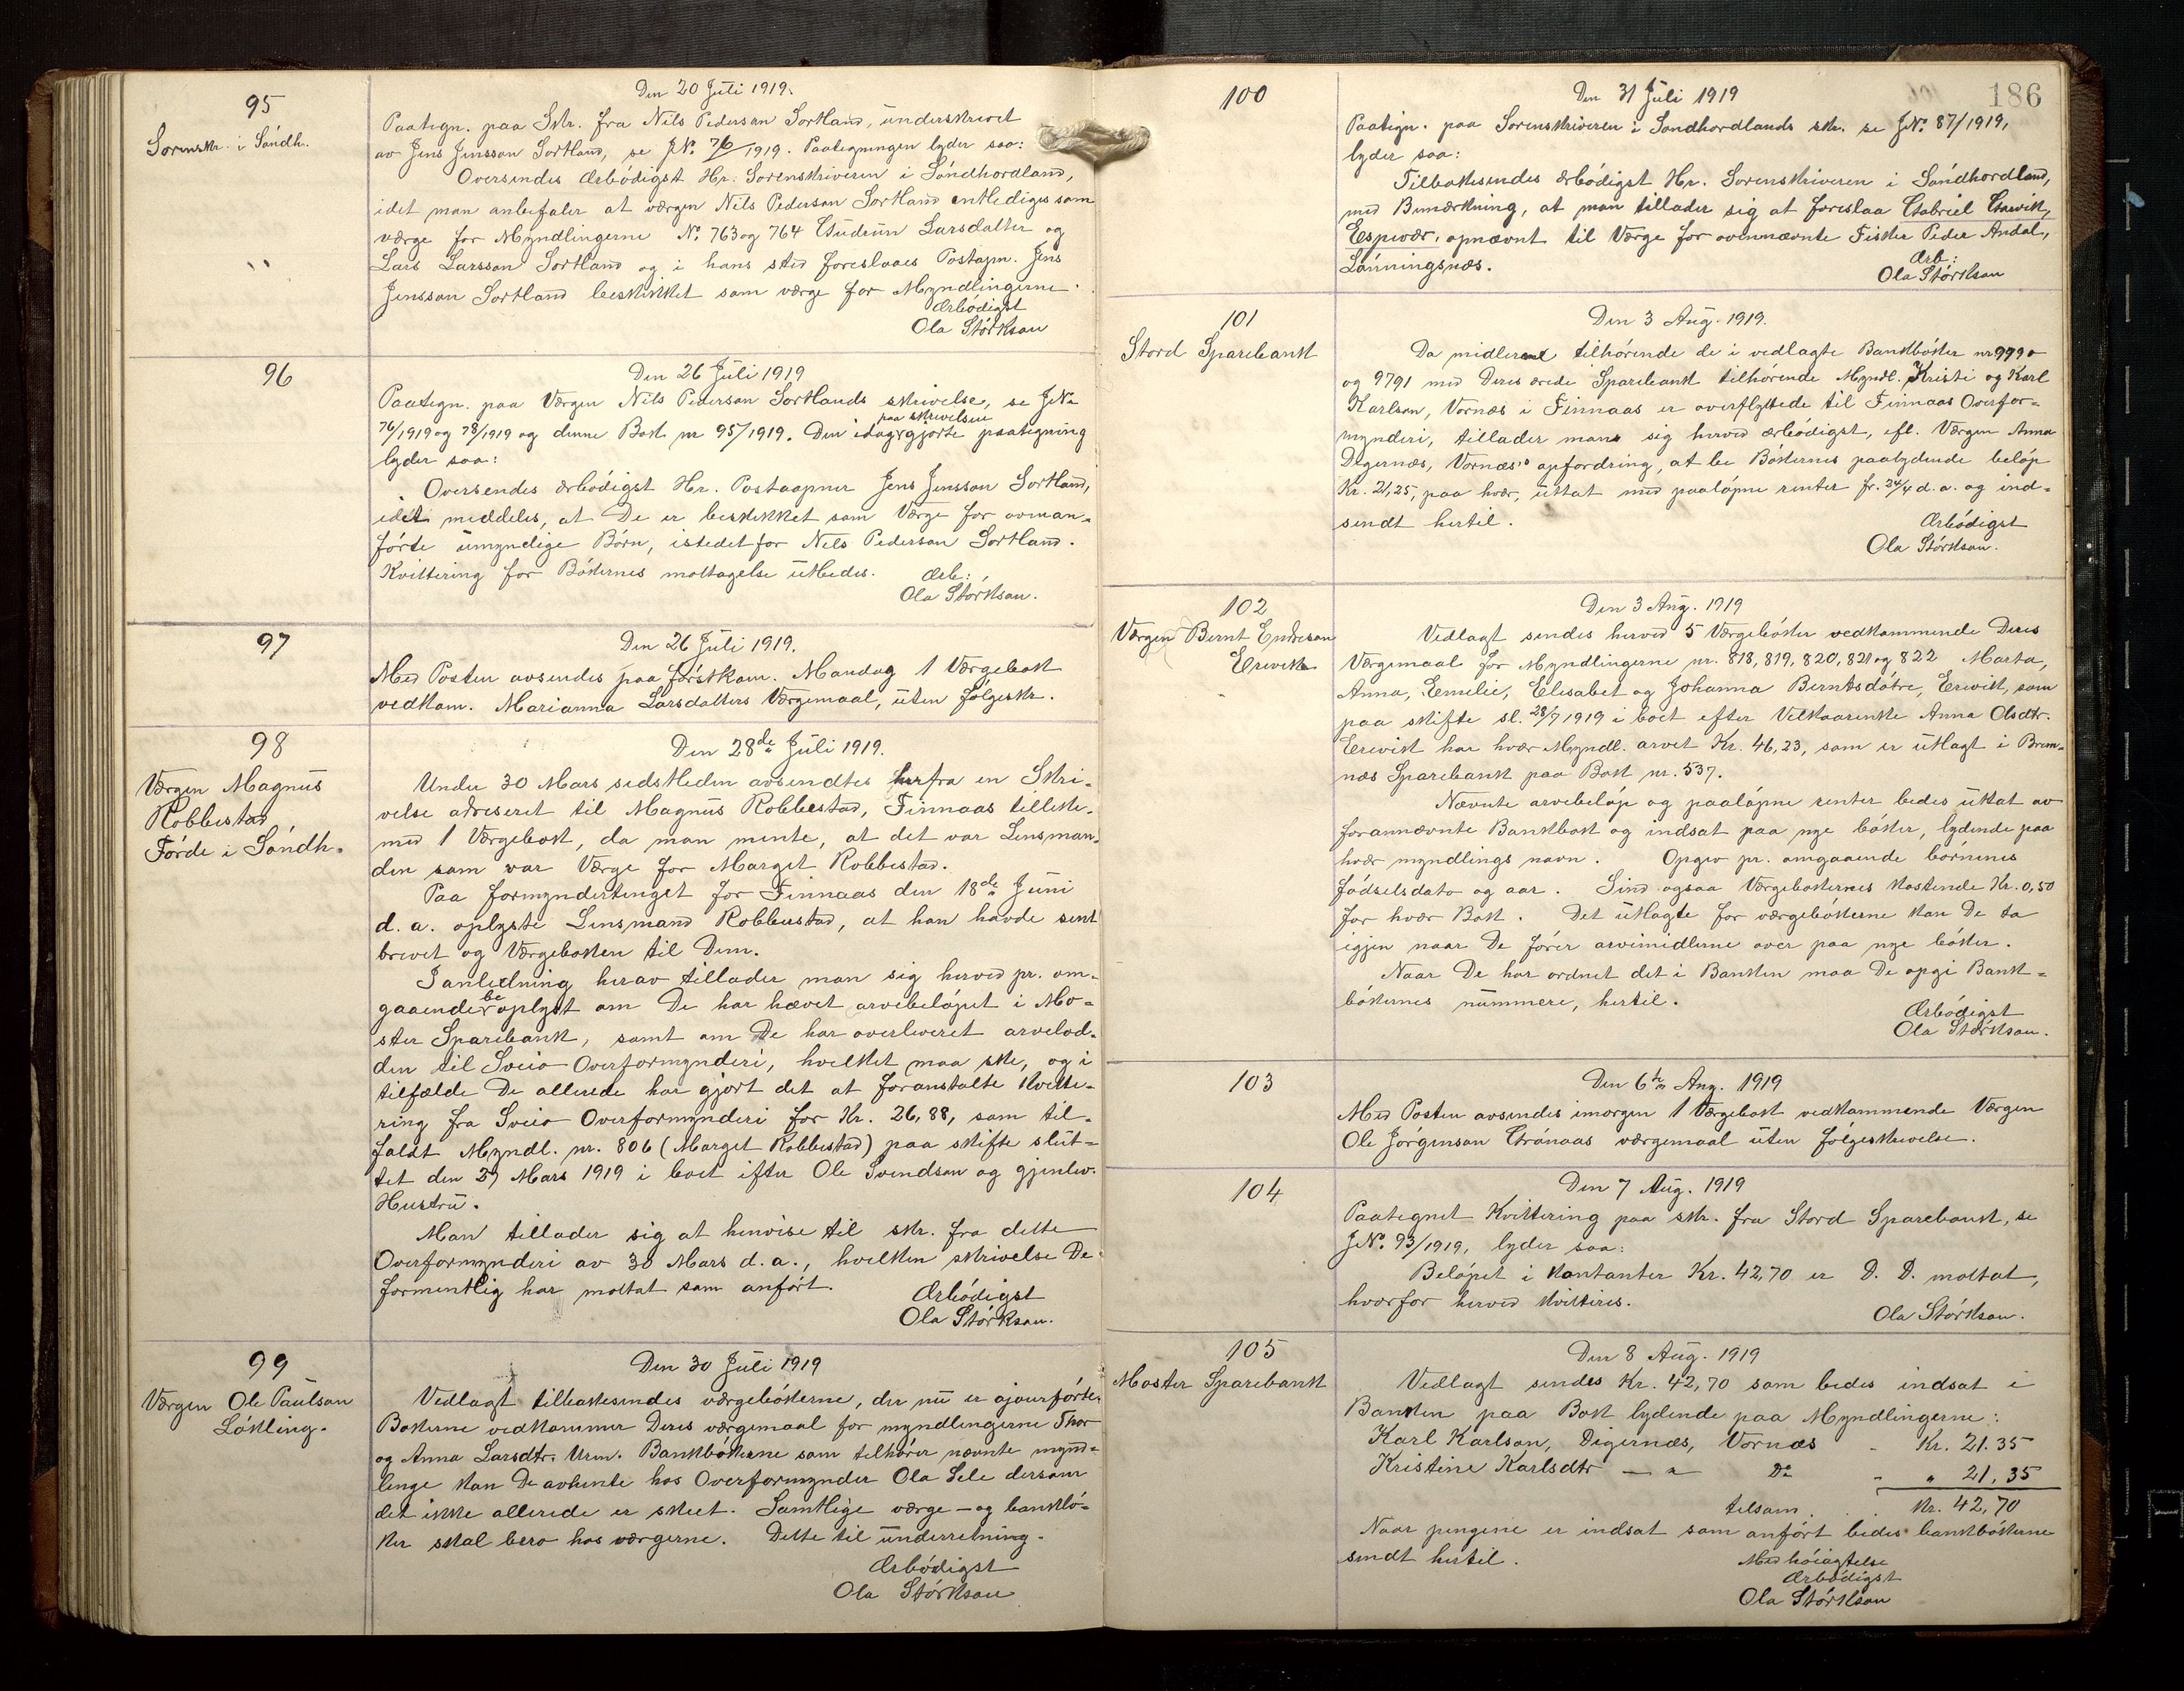 95
Sorenskr. i Søndh.
Den 20 Juli 1919.
Paategn. paa Skr. fra Nils Pederson Sortland, underskrevet
av Jens Jensson Sortland, se JNo. 76/1919. Paategningen lyder saa:
Oversendes ærbødigst Hr. Sorenskriveren i Søndhordland,
idet man anbefaler at værgen Nils Pederson Sortland entlediges som
værge for Myndlingerne No. 763 og 764 Gudrun Larsdatter og
Lars Larsson Sortland og i hans sted foreslaaes Postapn. Jens
Jensson Sortland beskikket som værge for Myndlingerne.
Ærbødigst
Ola Størkson
96
Den 26 Juli 1919
Paategn. paa Værgen Nils Pederson Sortlands skrivelse, se JNo
76/1919 og 78/1919 og denne Bok nr 95/1919. Den idag paa skrivelsen gjorte paategning
lyder saa:
Oversendes ærbødigst Hr. Postaapner Jens Jensson Sortland,
idet meddeles, at De er beskikket som Værge for ovman-
førte umyndige Børn, istedetfor Nils Pederson Sortland.
Kvittering for Bøkernes mottagelse utbedes. Ærb:
Ola Størkson.
97
Den 26 Juli 1919.
Med Posten avsendes paa førstkom. Mandag 1 Værgebok
vedkom. Marianna Larsdatters Værgemaal, uten følgeskr.
98
Værgen Magnus
Robbestad
Førde i Søndh.
Den 28de Juli 1919.
Under 30 Mars sidstleden avsendtes herfra en Skri-
velse adreseret til Magnus Robbestad, Finnaas tilleke-
med 1 Værgebok, da man mente, at det var Lensman-
den som var Værge for Marget Robbestad.
Paa formyndertinget for Finnaas den 18de Juni
d. a. oplyste Lensmand Robbestad, at han havde sent
brevet og Værgeboken til Dem.
I anledning herav tillader man sig herved pr. om-
gaaende be oplyst om De har hævet arvebeløpet i Mo-
ster Sparebank, samt om De har overleveret arvelod-
den til Sveio Overformynderi, hvilket maa ske, og i
tilfælde De allerede har gjort det at foranstalte kvitte-
ring fra Sveio Overformynderi for Kr. 26,88, som til-
faldt Myndl. nr. 806 (Marget Robbestad) paa skifte slut-
tet den 27 Mars 1919 i boet efter Ole Svendson og gjenlev.
Hustru.
Man tillader sig at henvise til skr. fra dette
Overformynderi av 30 Mars d. a., hvilken skrivelse De
formentlig har mottat som anført.
Ærbødigst
Ola Størkson.
99
Værgen Ole Paulson
Løkling.
Den 30 Juli 1919
Vedlagt tilbakesendes værgebøkerne, der nu er ajourførte.
Bøkerne vedkommer Deres værgemaal for myndlingerne Thor
og Anna Larsdtr. Urm. Bankbøkerne som tilhører nævnte mynd-
linge kan De avhente hos Overformynder Ola Sele dersom
det ikke allerede er skeet. Samtlige værge- og bankbø-
ker skal bero hos værgerne. Dette til underretning.
Ærbødigst
Ola Størkson
186
100
Den 31 Juli 1919
Paategn. paa Sorenskriveren i Sondhordlands skr. se JNo. 87/1919,
lyder saa:
Tilbakesendes ærbødigst Hr. Sorenskriveren i Søndhordland,
med Bemærkning, at man tillader sig at foreslaa Gabriel
Espevær, opnævnt til Værge for ovennævnte Fisker Peder Andal,
Lønningsnæs.
Ærb:
Ola Størkson
101
Stord Sparebank
Den 3 Aug. 1919.
Da midlerne tilhørende de i vedlagte Bankbøker nr 9790
og 9791 med Deres ærede Sparebank tilhørende Myndl. Kristi og Karl
Karlson, Vornæs i Finnaas er overflyttede til Finnaas Overfor-
mynderi, tillader man sig herved ærbødigst, eft. Værgen Anna
Digernæs, Vornæs's opfordring, at be Bøkernes paalydende beløp
Kr. 21,25, paa hver, uttat med paaløpne renter fr. 24/4 d. a. og ind-
sendt hertil.
Ærbødigst
Ola Størkson.
102
Værgen Bernt Endreson
Eervik
Den 3 Aug. 1919
Vedlagt sendes herved 5 Værgebøker vedkommende Deres
Værgemaal for Myndlingerne nr. 818, 819, 820, 821 og 822 Marta,
Anna, Emilie, Elisabet og Johanna Berntsdøtre, Eervik, som
paa skifte sl. 28/7 1919 i boet efter Velkaarenke Anna Olsdtr.
Eervik har hver Myndl. arvet Kr. 46,23, som er utlagt i Brem-
næs Sparebank paa Bok nr. 537.
Nævnte arvebeløp og paaløpne renter bedes uttat av
forannævnte Bankbok og indsat paa nye bøker, lydende paa
hver myndlings navn. Opgiv pr. omgaaende børnenes
fødselsdato og aar. Send ogsaa Værgebokernes kostende Kr. 0,50
for hver Bok. Det utlagte for værgebøkerne kan De ta
igjen naar De fører arvemidlerne over paa nye bøker.
Naar De har ordnet det i Banken maa De opgi Bank-
bøkernes nummere, hertil.
Ærbødigst
Ola Størkson.
103
Den 6te Aug. 1919
Med Posten avsendes imorgen 1 Værgebok vedkommende Værgen
Ole Jørgenson Grønaas værgemaal uten følgeskrivelse.
104
Den 7 Aug. 1919
Paategnet Kvittering paa skr. fra Stord Sparebank, se
JNo. 93/1919, lyder saa:
Beløpet i kontanter Kr. 42,70 er D. D. mottat,
hvorfor herved kvitteres.
Ola Størkson.
105
Moster Sparebank
Den 8 Aug. 1919
Vedlagt sendes Kr. 42,70 som bedes indsat i
Banken paa Bok lydende paa Myndlingerne:
Karl Karlson, Digernæs, Vornæs - Kr. 21.35
Kristine Karlsdtr — " — Do - " 21.35
tilsam. Kr. 42,70
Naar pengene er indsat som anført bedes bankbøkerne
sendt hertil.
Med høiagtelse
Ærbødigst
Ola Størkson